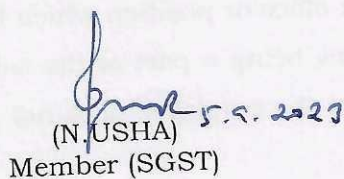 5.9.2023
(N.USHA)
Member (SGST)